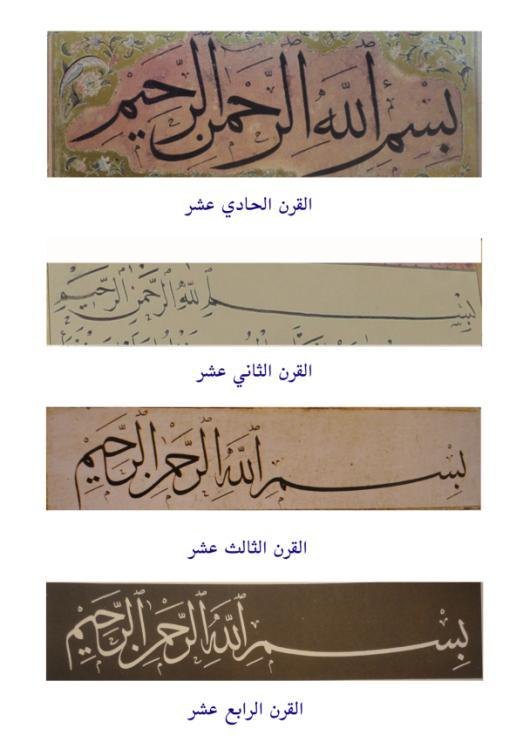 بسم الله الرحمن الرحيم
القرن الحادي عشر
بسم الله الرحمن الرحيم
القرن الثاني عشر
بسم الله الرحمن الرحيم
القرن الثالث عشر
بسم الله الرحمن الرحيم
القرن الرابع عشر